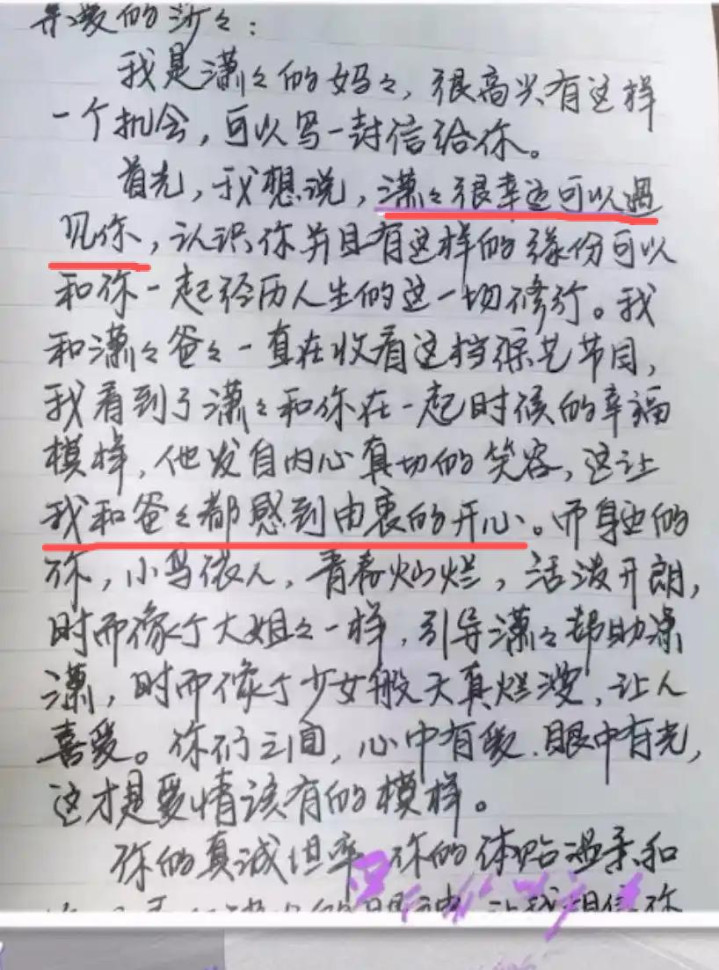 亲爱的沙々：
我是潇々的妈々，很高兴有这样
一个机会，可以写一封信给你。
首先，我想说，潇々很幸运可以遇
见你，认识你并且有这样的缘份可以
和你一起经历人生的这一切修行。我
和潇々爸々一直在收看这档综艺节目，
我看到了潇々和你在一起时候的幸福
模样，他发自内心真切的笑容，这让
我和爸々都感到由衷的开心。而身边的
你，小鸟依人，青春灿烂，活泼开朗，
时而像个大姐々一样，引导潇々帮助潇
潇，时而像个少女般天真烂漫，让人
喜爱。你们之间，心中有爱，眼中有光，
这才是爱情该有的模样。
你的真诚坦率，你的体贴温柔和
让我相信你